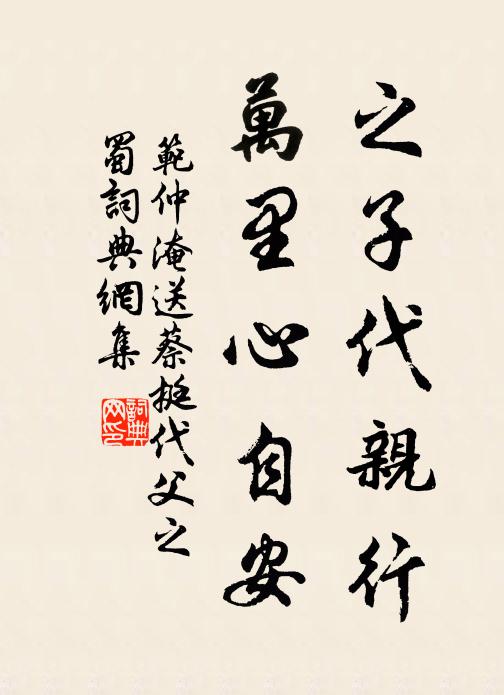 之子代親行
萬里心自安
範仲淹送蔡挺代父之
蜀詞典網集
詞典
网印